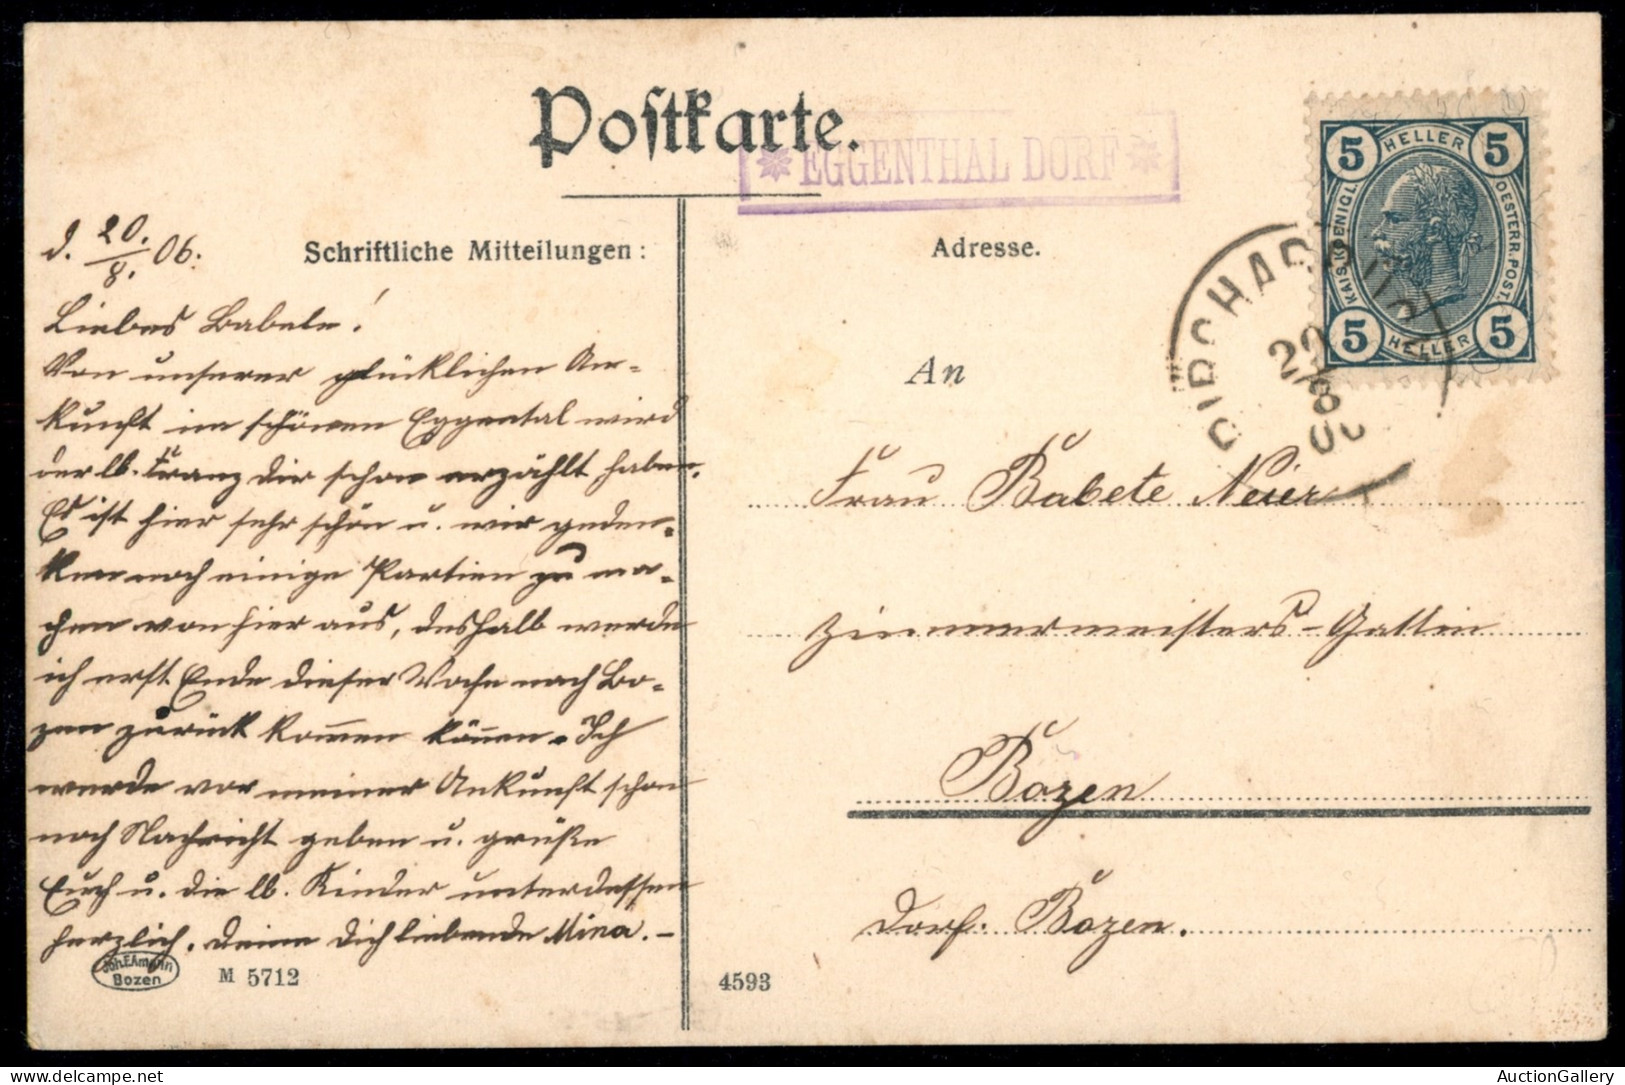 Postkarte.
* EGGENTHAL DORF *
5 HELLER 5
KAIS. KOENIGL.
OESTERR. POST.
5 HELLER 5
20
8
d. 20./8. 06.
Schriftliche Mitteilungen:
Liebes Babele!
Von unserer glücklichen An-
kunft im schönen Eggental wird
der lb. Franz Dir schon erzählt haben.
Es ist hier sehr schön u. wir geden-
ken noch einige Partien zu ma-
chen von hier aus, deshalb werde
ich erst Ende dieser Woche nach Bo-
zen zurück kommen können. Ich
werde vor meiner Ankunft schon
noch Nachricht geben u. grüße
Euch u. die lb. Kinder unterdessen
herzlich. Deine Dich liebende Mina. –
Joh. F. Amonn
Bozen
M 5712
4593
Adresse.
An
Frau Babete
Zimmermeisters-Gattin
Bozen
Dorf. Bozen.
AuctionGallery